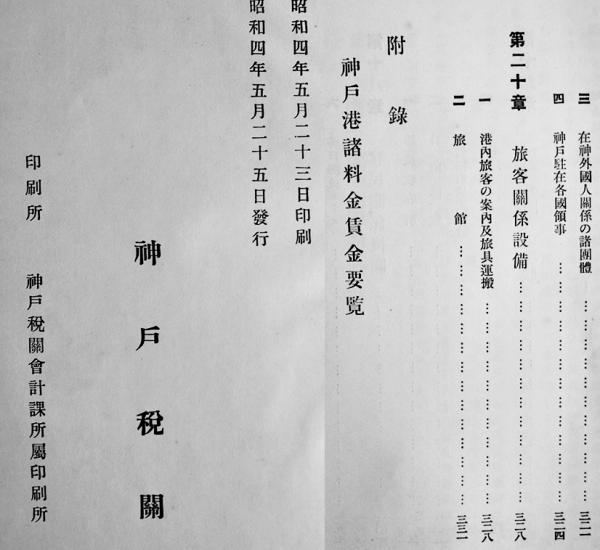 三 在神外國人關係の諸團體 ………………………………… 三二一
四 神戶駐在各國領事 ………………………………… 三二四
第二十章 旅客關係設備 ………………………………… 三二八
一 港內旅客の案內及旅具運搬 ………………………………… 三二八
二 旅館 ………………………………… 三三一
附錄
神戶港諸料金賃金要覧
昭和四年五月二十三日印刷
昭和四年五月二十五日發行
神戶稅關
印刷所 神戶稅關會計課所屬印刷所